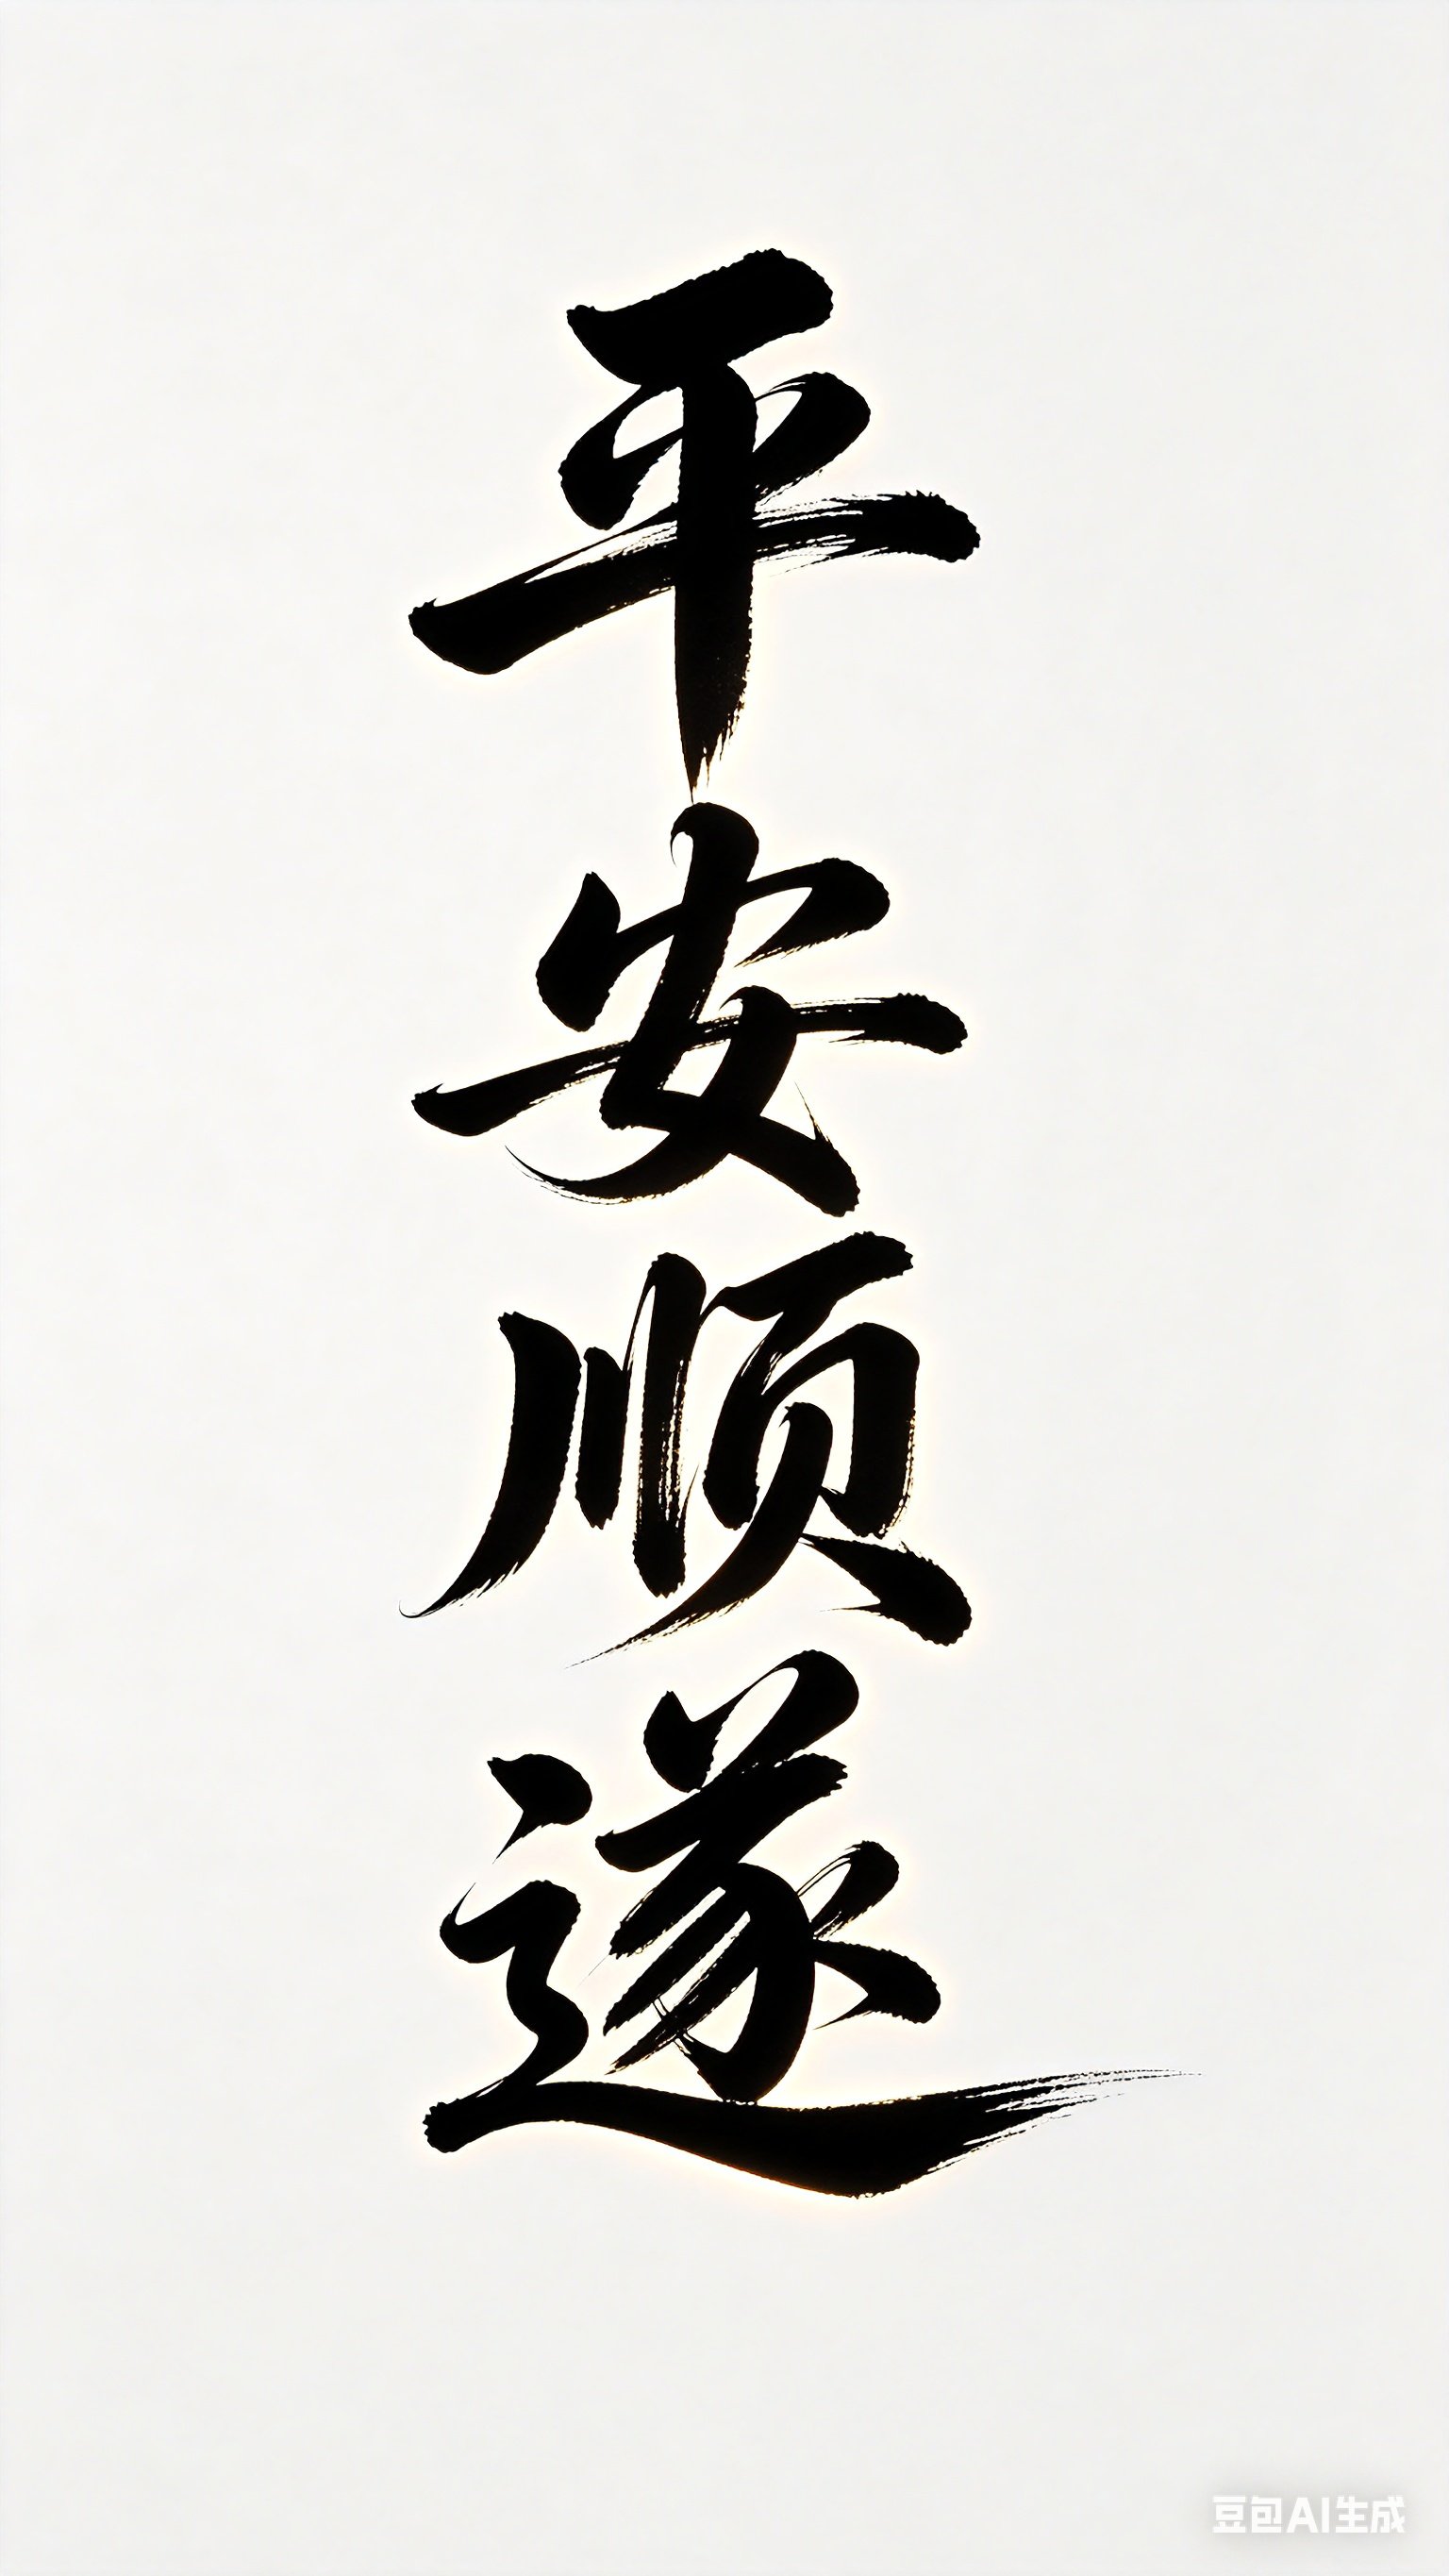 平安顺遂
豆包AI生成